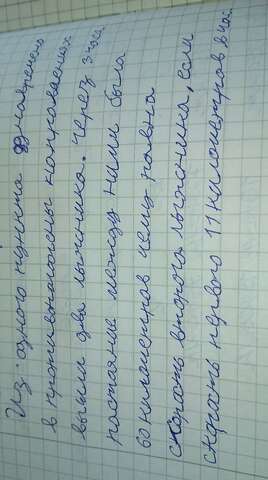 Из одного пункта одновременно
в противоположных направлениях
вышли два лыжника. Через 3 часа
растояние между ними была
60 километров чему равна
скорость второго лыжника, если
скорость первого 11 километров в час.